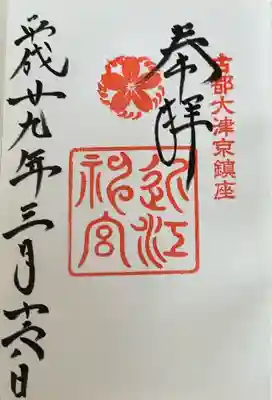 古都大津京鎮座
奉拝
近江
神宮
平成廿九年三月六日